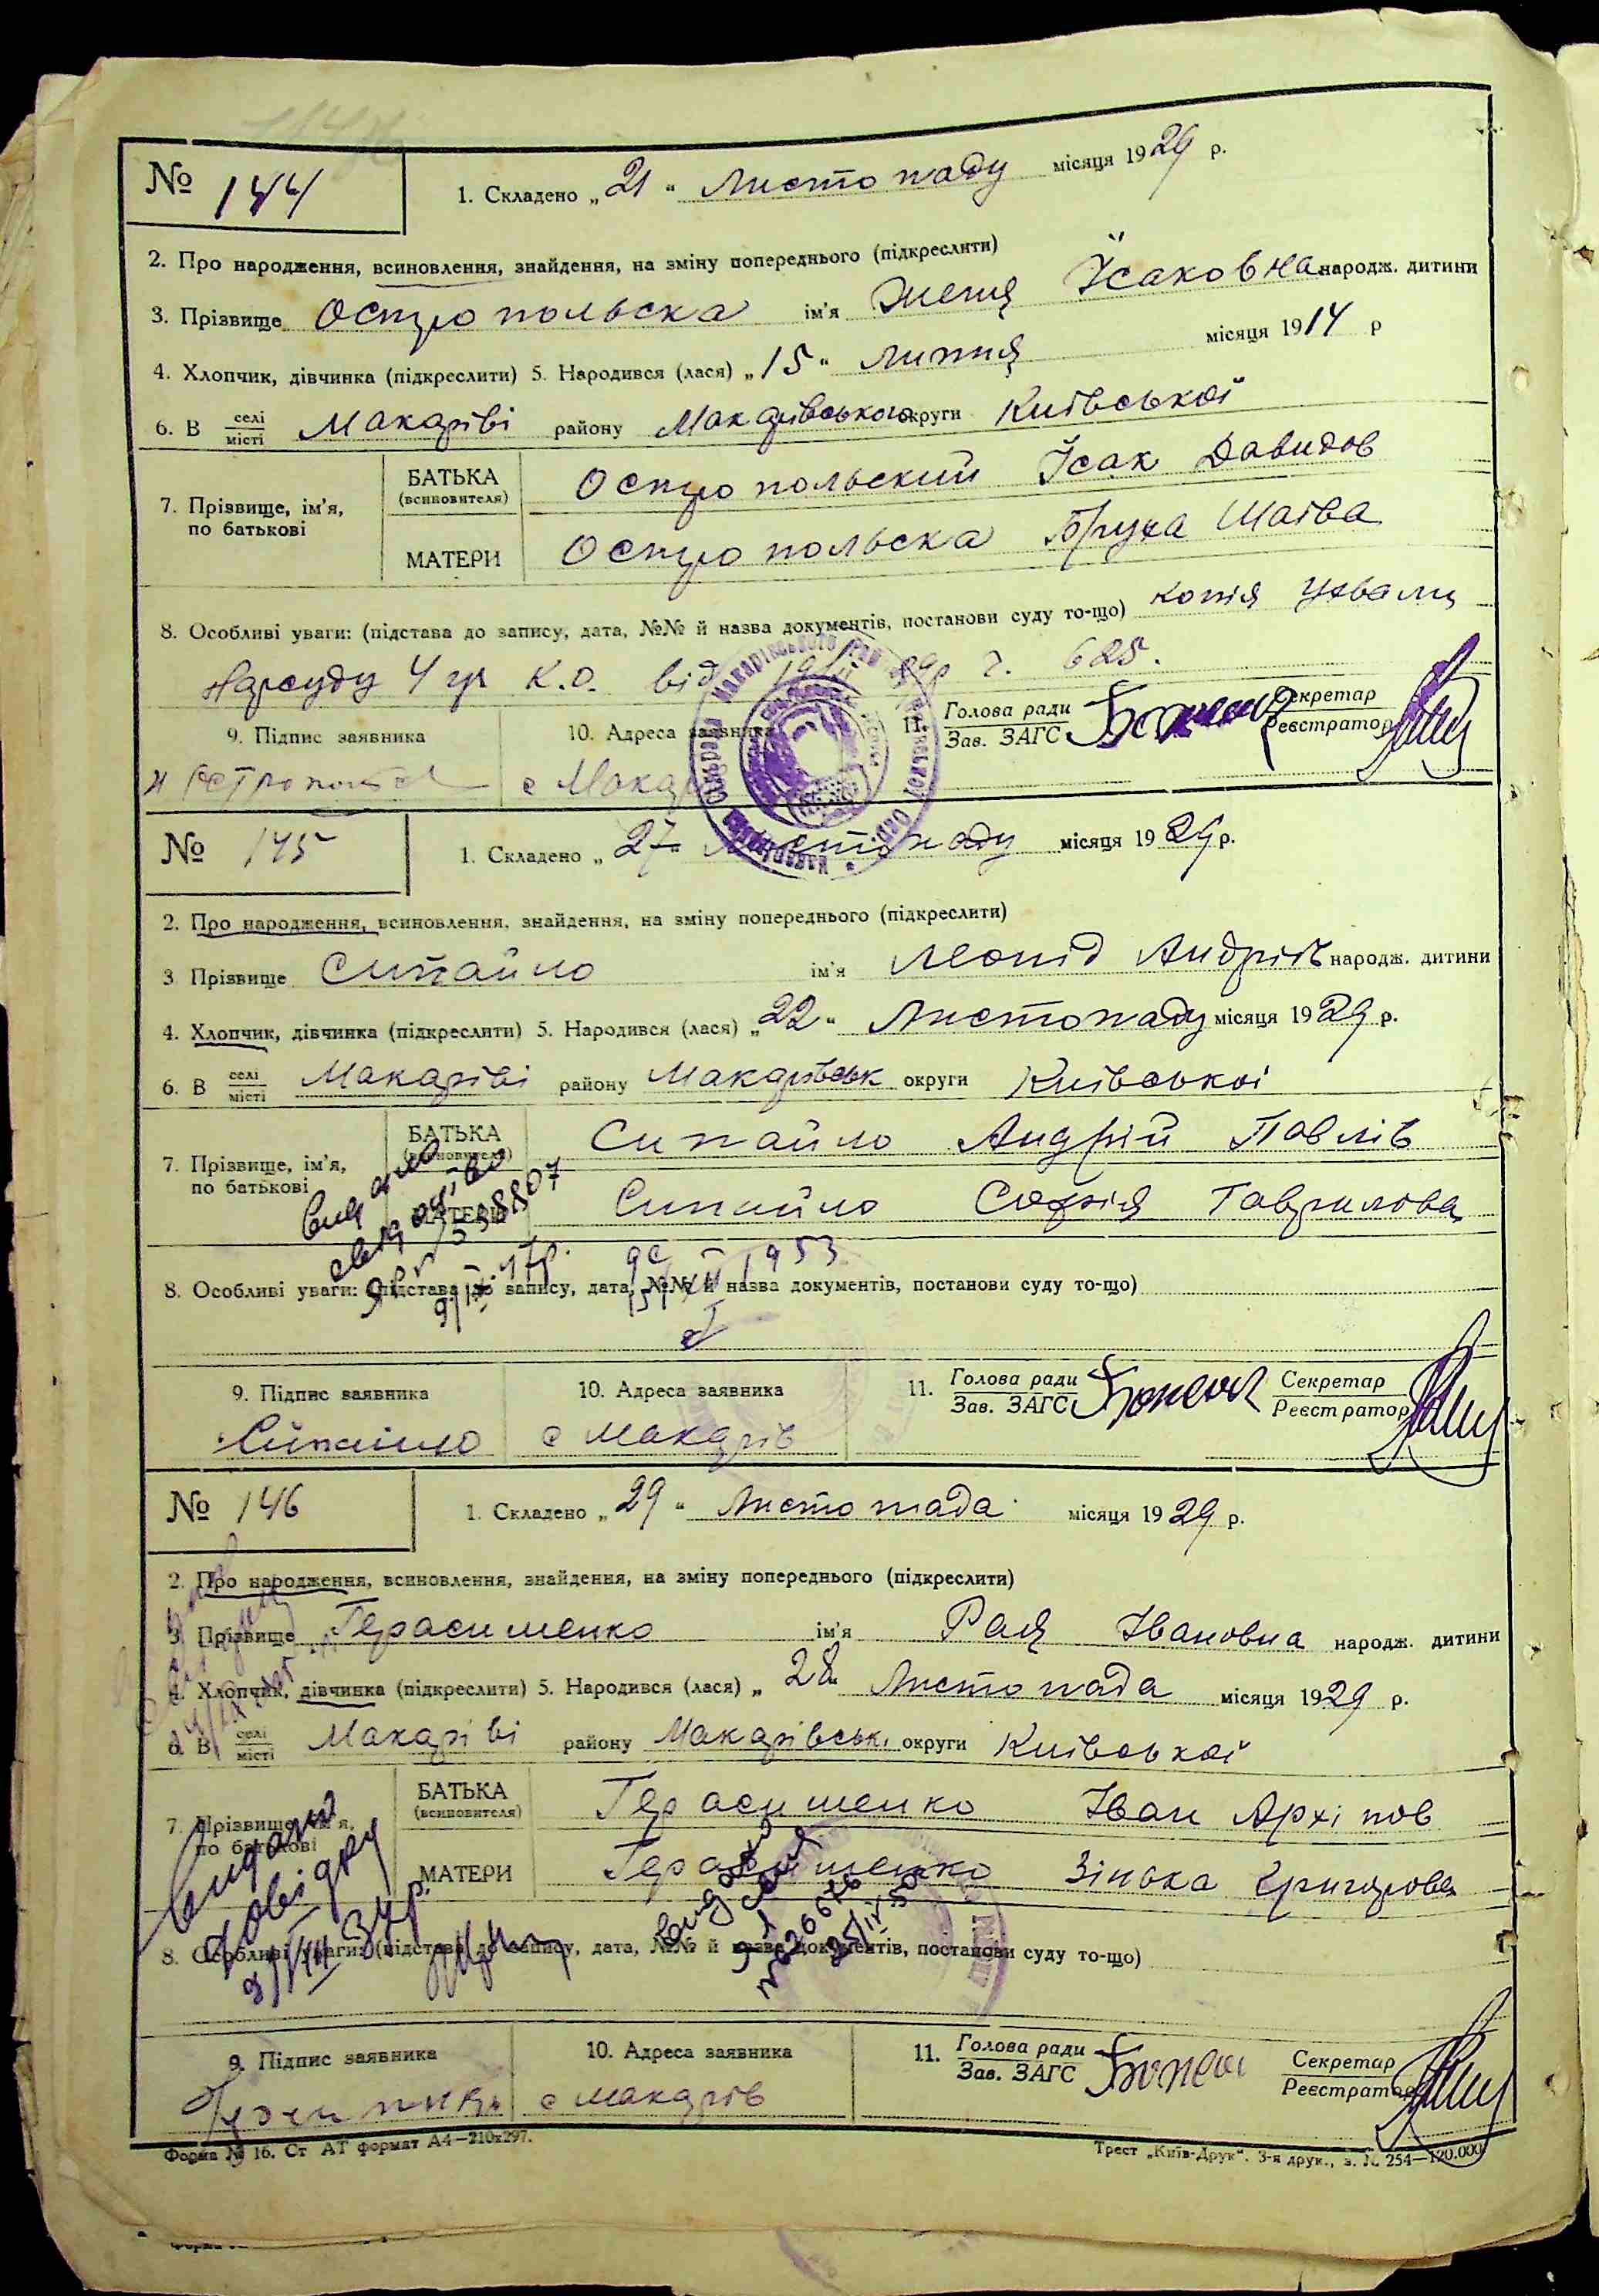 № 144
1. Складено „21“ Листопаду місяця 1929 р.
2. Про народження, всиновлення, знайдення, на зміну попереднього (підкреслити)
3. Прізвище Остропольска ім'я Женя Ісаковна народж. дитини
4. Хлопчик, дівчинка (підкреслити) 5. Народився (лася) „15“ липня місяця 1914 р
6. В селі місті Макарїві району Макарівського округи Київської
7. Прізвище, ім'я, по батькові
БАТЬКА (всиновителя) Остропольский Ісак Давидов
МАТЕРИ Остропольска Бруха Шаєва
8. Особливі уваги: (підстава до запису, дата, №№ й назва документів, постанови суду то-що) копія ухвали
Нарсуду 4 К.О. від ч. 625.
9. Підпис заявника 10. Адреса заявника 11. Голова ради Зав. ЗАГС Секретар Реєстратор
с Макар
№ 145
1. Складено „27“ Листопаду місяця 1929 р.
2. Про народження, всиновлення, знайдення, на зміну попереднього (підкреслити)
3 Прізвище Сипайло ім'я Леонід Андріїв народж. дитини
4. Хлопчик, дівчинка (підкреслити) 5. Народився (лася) „22“ Листопаду місяця 1929 р.
6. В селі місті Макарїві району Макарівськ округи Київської
7. Прізвище, ім'я, по батькові
БАТЬКА (всиновителя) Сипайло Андрій Павлів
МАТЕРИ Сипайло Софія Гаврилова
8. Особливі уваги: (підстава до запису, дата, №№ й назва документів, постанови суду то-що)
9. Підпис заявника 10. Адреса заявника 11. Голова ради Зав. ЗАГС Секретар Реєстратор
Сипайло с Макарів
№ 146
1. Складено „29“ Листопада місяця 1929 р.
2. Про народження, всиновлення, знайдення, на зміну попереднього (підкреслити)
3. Прізвище Герасименко ім'я Рая Івановна народж. дитини
4. Хлопчик, дівчинка (підкреслити) 5. Народився (лася) „28 Листопада місяця 1929 р.
6. В селі місті Макарїві району Макарівськ. округи Київської
7. Прізвище, ім'я, по батькові
БАТЬКА (всиновителя) Герасименко Іван Архіпов
МАТЕРИ Герасименко Зінька Григорова
8. Особливі уваги: (підстава до запису, дата, №№ й назва документів, постанови суду то-що)
9. Підпис заявника 10. Адреса заявника 11. Голова ради Зав. ЗАГС Секретар Реєстратор
с Макарів
Форма № 16. Ст АТ формат А4—210х297. Трест „Київ-Друк“. 3-я друк., з. № 254—120.000